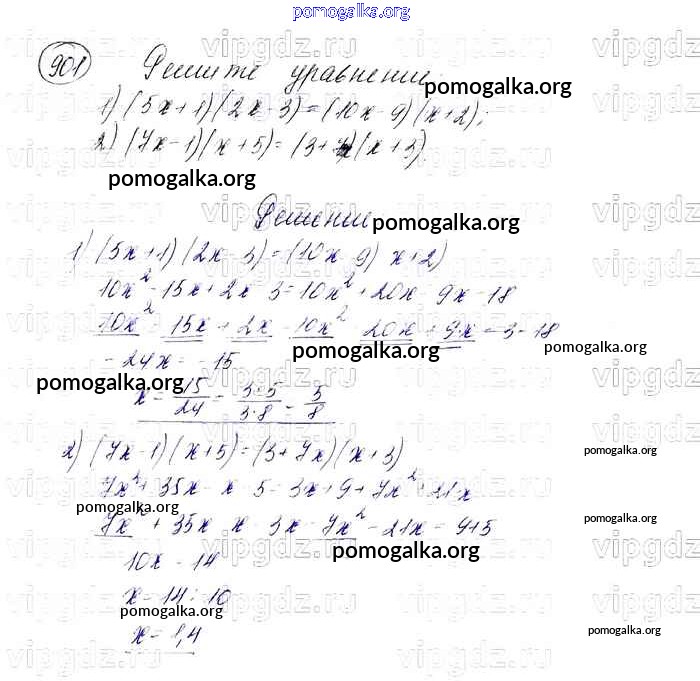 pomogalka.org
901 Решите уравнение
pomogalka.org
1) (5x+1)(2x-3)=(10x-9)(x+2);
2) (7x-1)(x+5)=(3+7x)(x+3)
pomogalka.org
Решение
pomogalka.org
1) (5x+1)(2x-3)=(10x-9)(x+2)
10x²-15x+2x-3=10x²+20x-9x-18
10x²-15x+2x-10x²-20x+9x=3-18
pomogalka.org pomogalka.org
-24x=-15
pomogalka.org
x=15/24=3·5/3·8=5/8
2) (7x-1)(x+5)=(3+7x)(x+3)
pomogalka.org
7x²+35x-x-5=3x+9+7x²+21x
pomogalka.org
pomogalka.org
7x²+35x-x-3x-7x²-21x=9+5
pomogalka.org
10x=14
x=14:10
pomogalka.org
pomogalka.org
x=1,4
vipgdz.ru